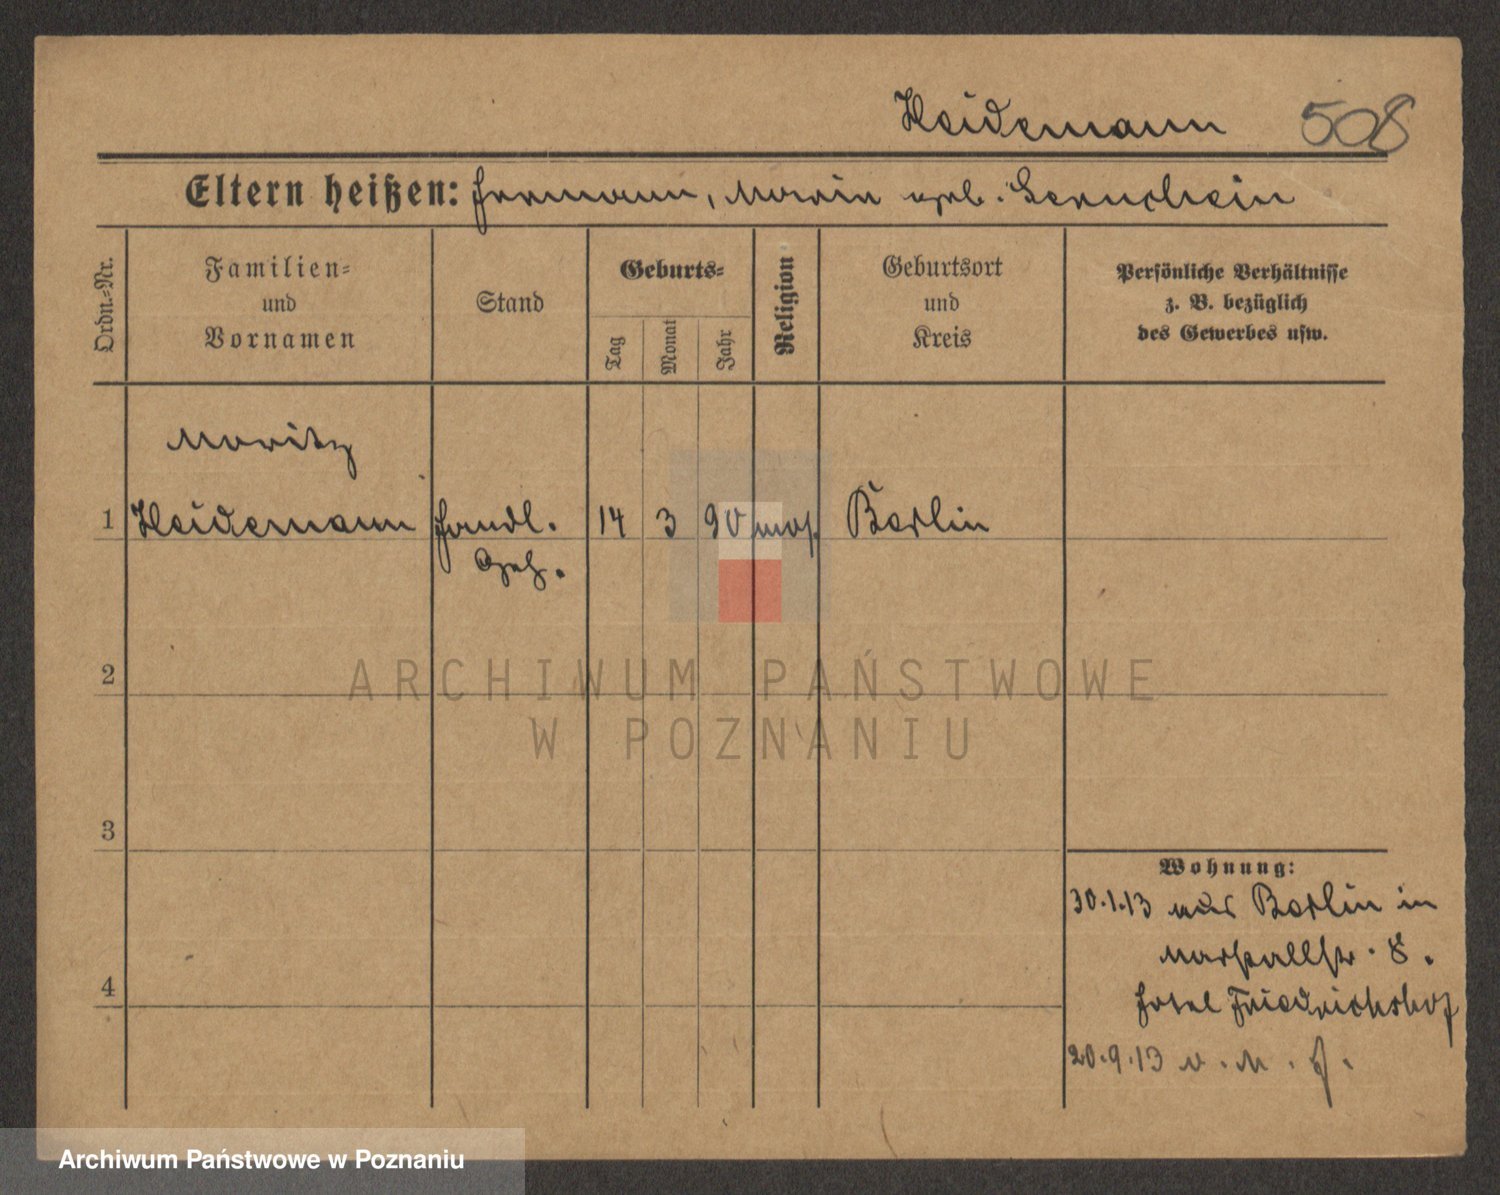 Heidemann 508
Eltern heißen: Hermann, Marie geb.
Ordn.-Nr.
Familien-
und
Vornamen
Stand
Geburts-
Tag
Monat
Jahr
Religion
Geburtsort
und
Kreis
Persönliche Verhältnisse
z. B. bezüglich
des Gewerbes usw.
Moritz
1 Heidemann Handl. 14 3 90 mos. Berlin
Geh.
2
3
4
Wohnung:
30.1.13 aus Berlin in
Marstallstr. 8.
Hotel Friedrichshof
20.9.13 v. M.
ARCHIWUM PAŃSTWOWE
W POZNANIU
Archiwum Państwowe w Poznaniu